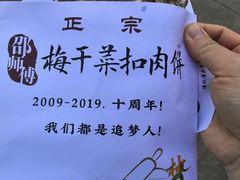 正宗
邵师傅
梅干菜扣肉饼
2009-2019.十周年!
我们都是追梦人!
梦